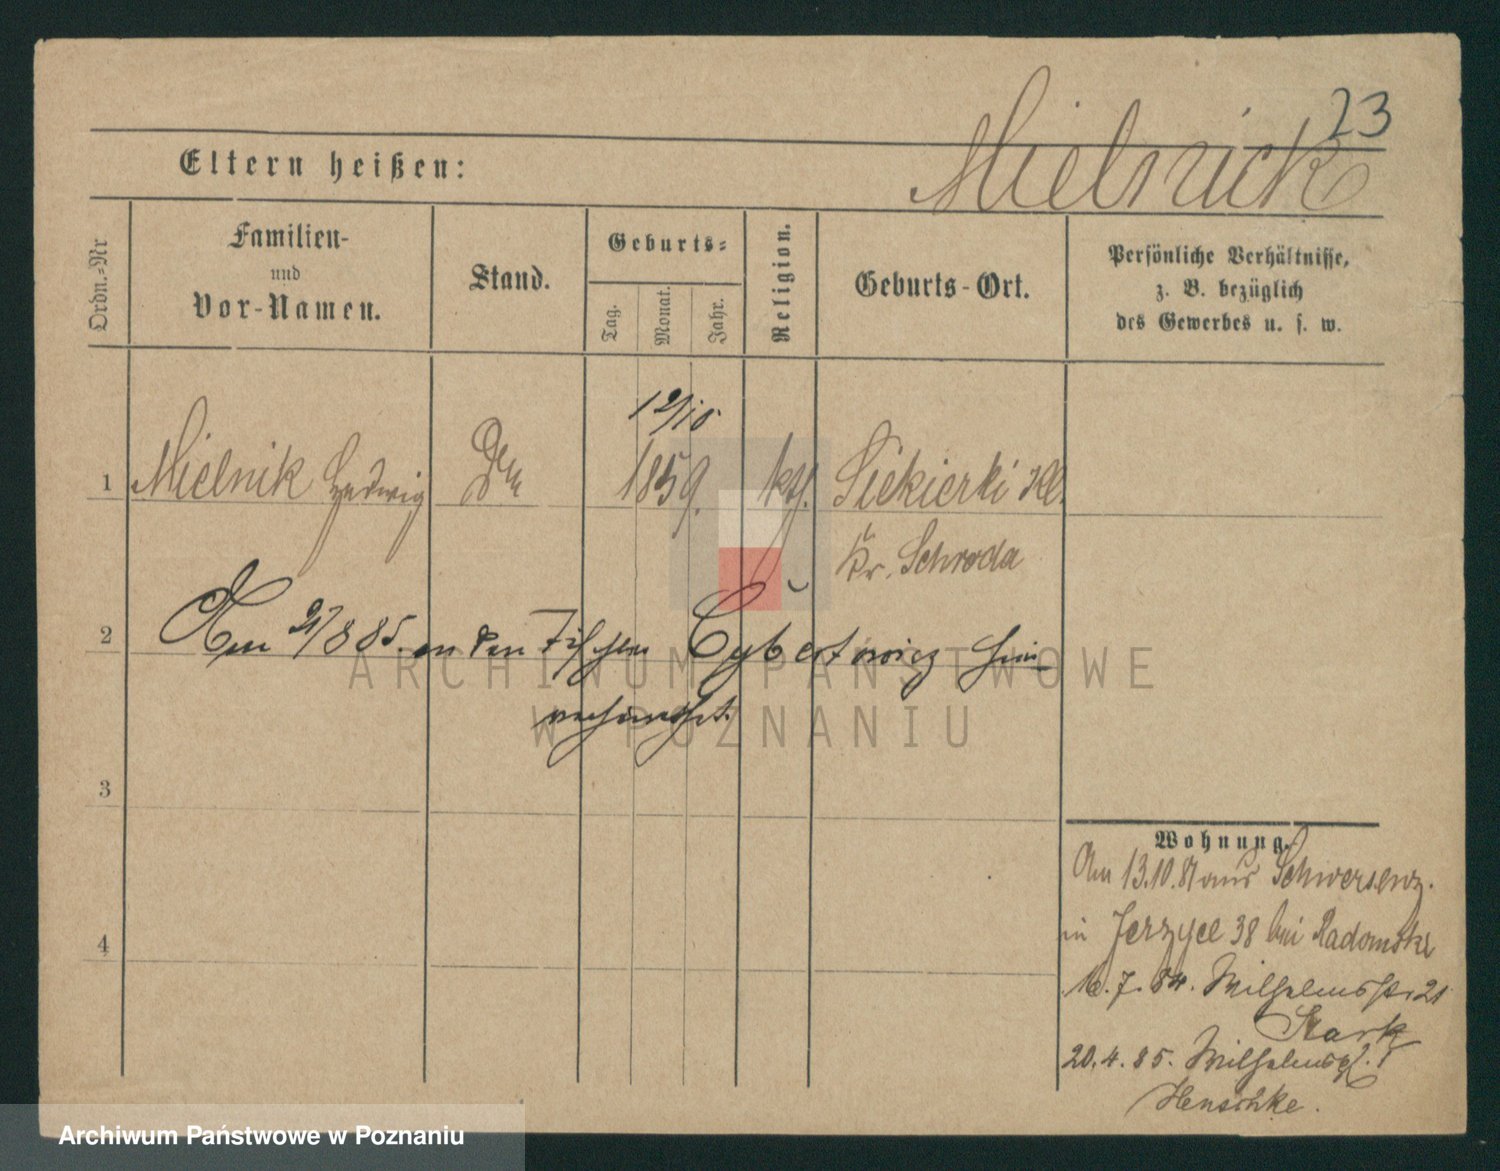 23
Mielnick
Eltern heißen:
Ordn.=Nr
Familien-
und
Vor-Namen.
Stand.
Geburts=
Tag.
Monat.
Jahr.
Religion.
Geburts-Ort.
Persönliche Verhältnisse,
z. B. bezüglich
des Gewerbes u. s. w.
12/10
1 Mielnik Hedwig 1859. kth. Siekierki Kl.
Kr. Schroda
2 Am 21/8 85. an den Cybertowicz
verheirathet.
3
4
Wohnung.
Am 13.10.81 aus Schwersenz.
in Jerzyce 38 bei Radomski
16.7.84. Wilhelmsstr. 21
Stark
20.4.85. Wilhelmspl. 1
Henschke.
ARCHIWUM PAŃSTWOWE
W POZNANIU
Archiwum Państwowe w Poznaniu